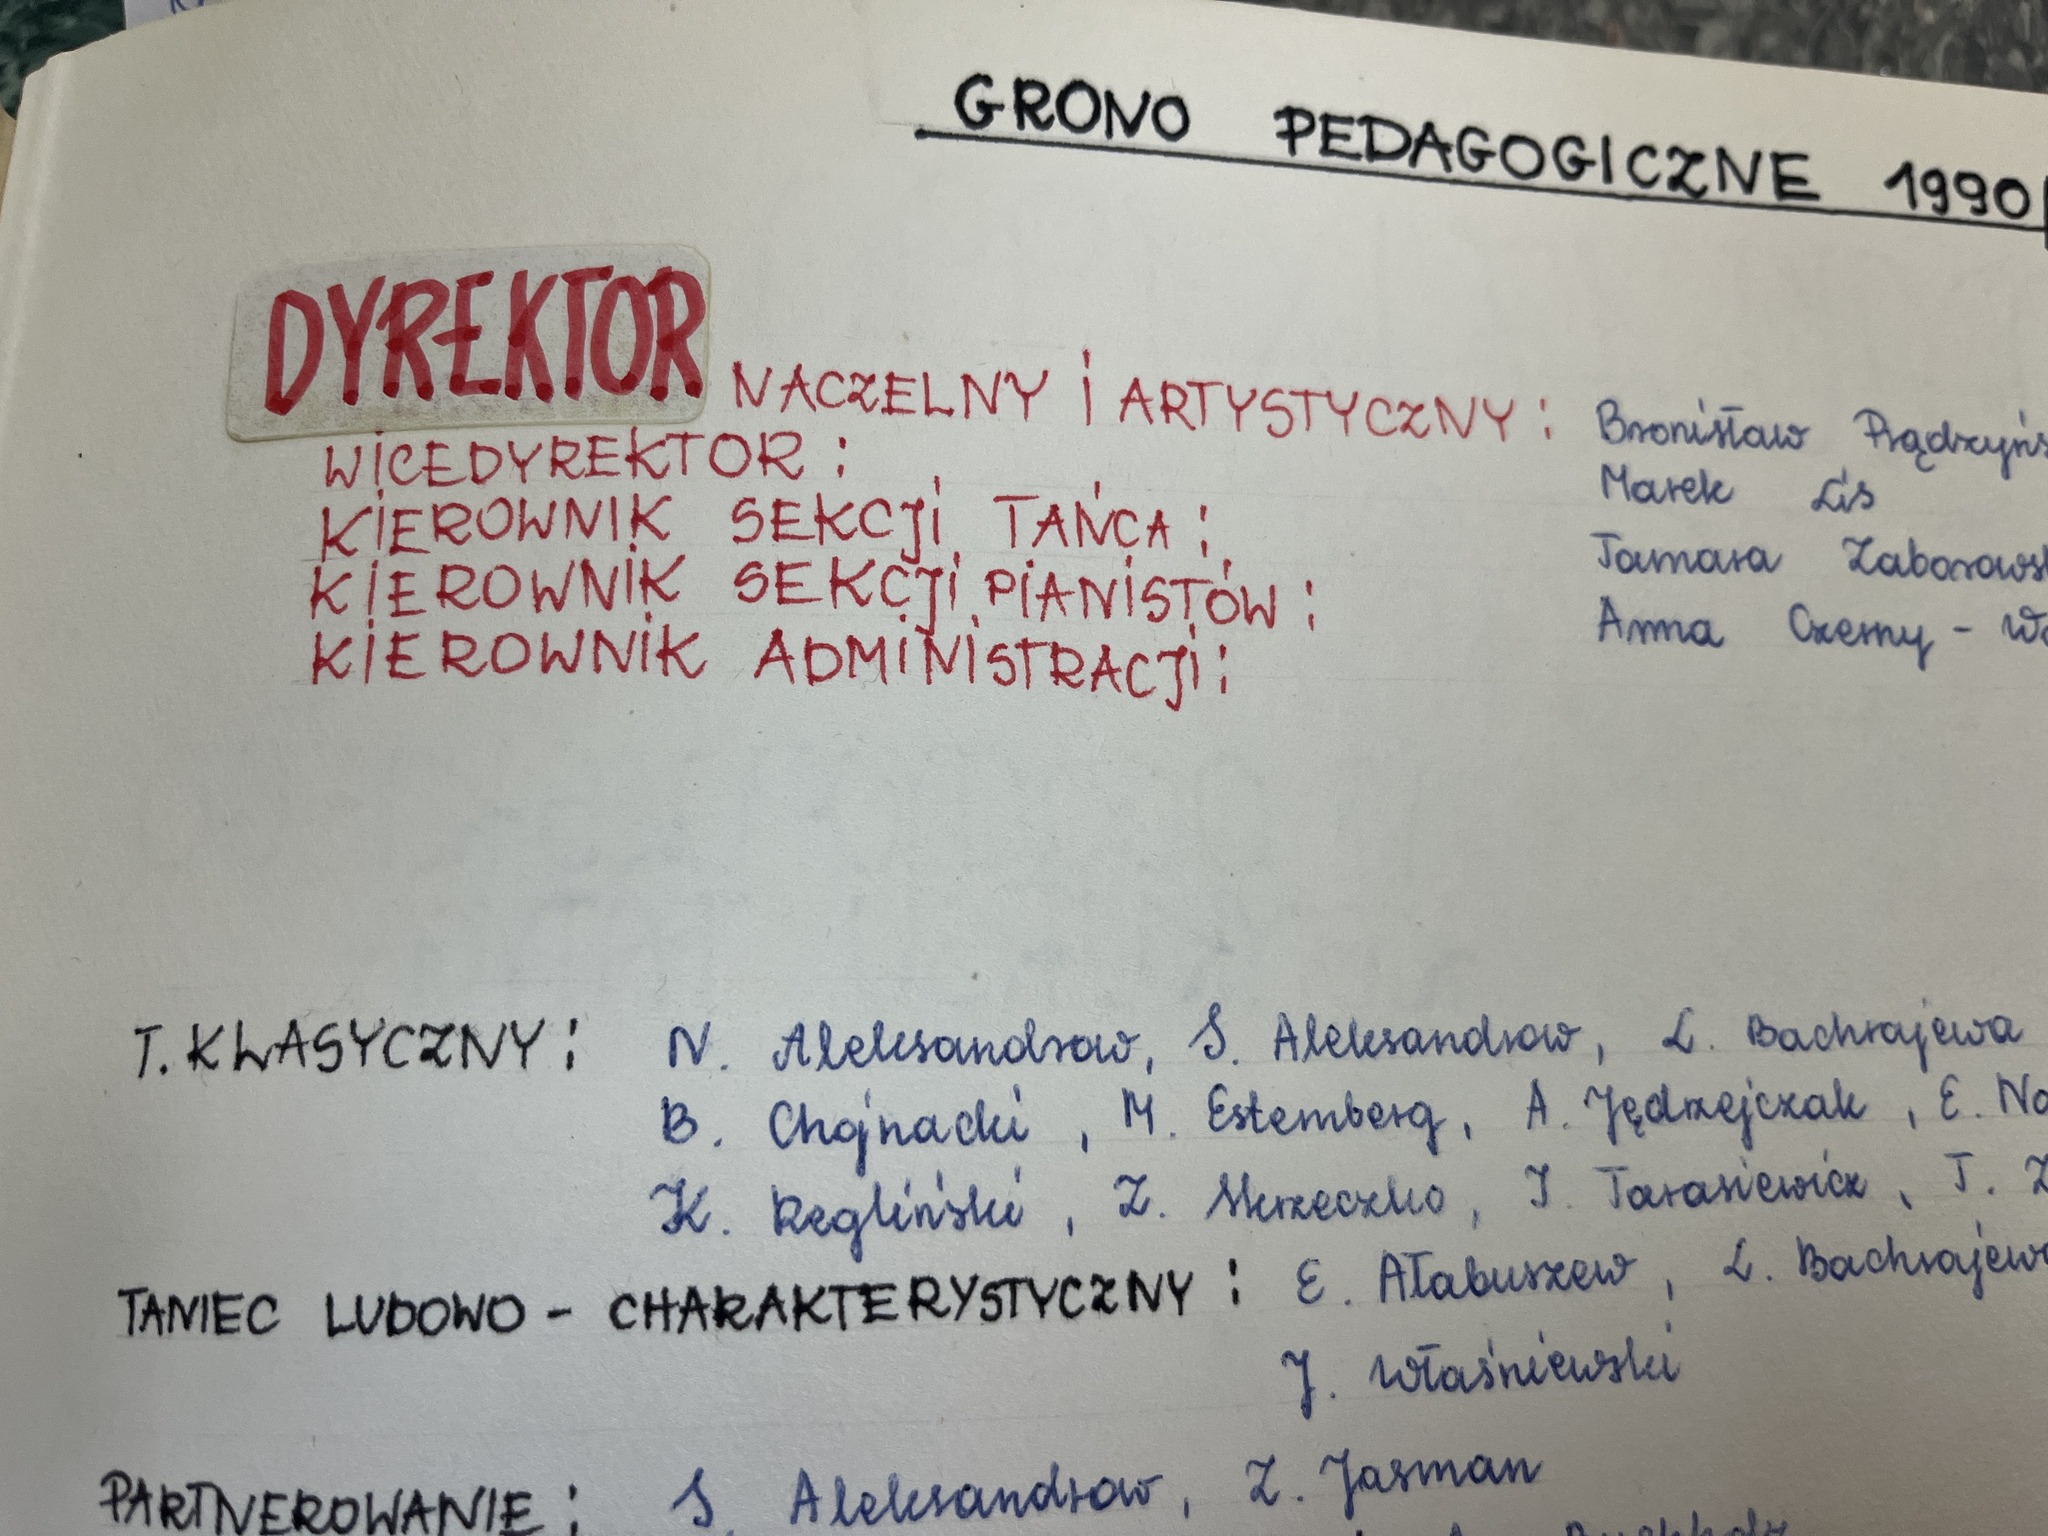 GRONO PEDAGOGICZNE 1990/
DYREKTOR NACZELNY I ARTYSTYCZNY: Bronisław Prądzyńs
WICEDYREKTOR: Marek Lis
KIEROWNIK SEKCJI TAŃCA: Tamara Zaborowsk
KIEROWNIK SEKCJI PIANISTÓW: Anna Czerny - Wo
KIEROWNIK ADMINISTRACJI:
T. KLASYCZNY: N. Aleksandrow, S. Aleksandrow, L. Bachrajewa
B. Chojnacki, M. Estemberg, A. Jędrzejczak, E. No
K. Regliński, Z. Skrzeczko, I. Tarasiewicz, T. Z
TANIEC LUDOWO - CHARAKTERYSTYCZNY: E. Ałabuszew, L. Bachrajewa
J. Właśniewski
PARTNEROWANIE: S. Aleksandrow, Z. Jasman